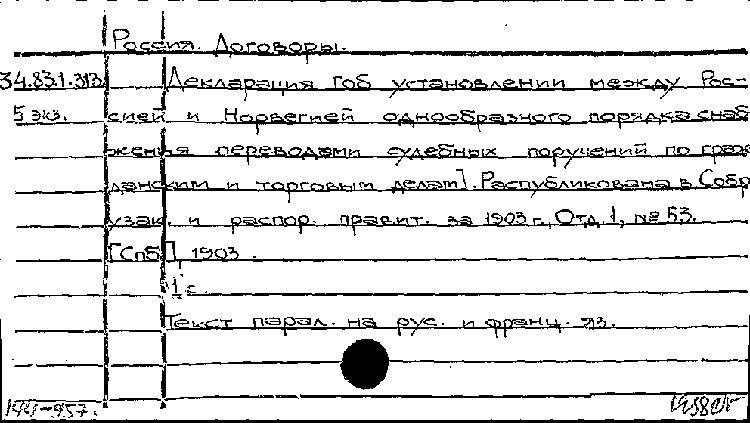 Россия. Договоры.
34.83.1.313 Декларация [об установлении между Рос-
5 экз. сией и Норвегией однообразного порядка снаб
жения переводами судебных поручений по граж
данским и торговым делам]. Распубликована в Собр
узак. и распор. правит. за 1903 г., Отд. 1, № 53.
[Спб], 1903.
1 с.
Текст парал. на рус. и франц. яз.